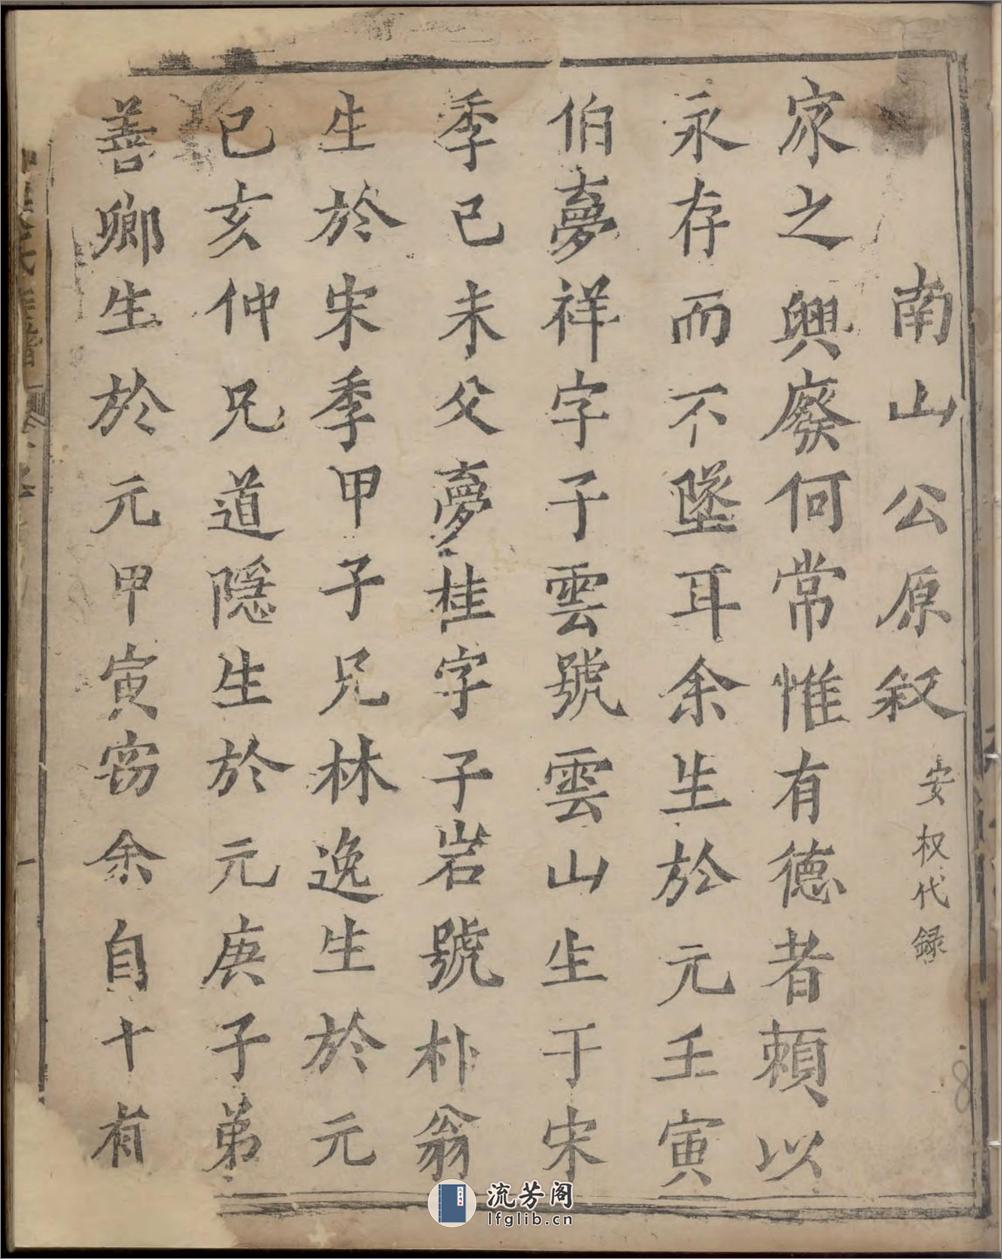 南山公原叙 安权代録
家之興廢何常惟有德者頼以
永存而不墜耳余生於元壬寅
伯夢祥字子雲號雲山生于宋
季己未父夢桂字子岩號朴翁
生於宋季甲子兄林逸生於元
己亥仲兄道隱生於元庚子弟
善卿生於元甲寅窃余自十有
8
流芳阁
lfglib.cn